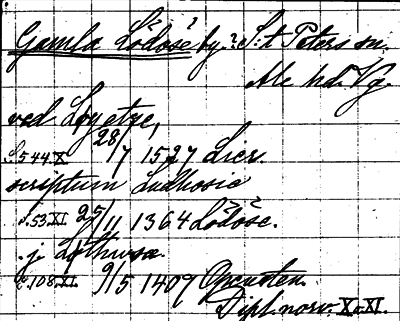 Gamla Lödöse by. ? S:t Peters sn.
Ale hd. Vg.
ved Lyetze,
S. 544. X 28/7 1527 Lier
scriptum Ludhosie
S. 53. XI 25/11 1364 Lödöse.
j
S. 108. XI. 9/5 1407 Opensten.
Dipl. norv. X o. XI.